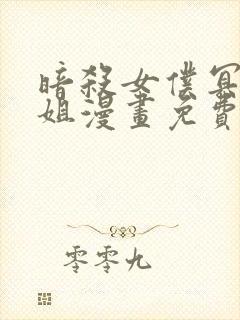 暗殺女僕冥
姐漫畫免費
零零九